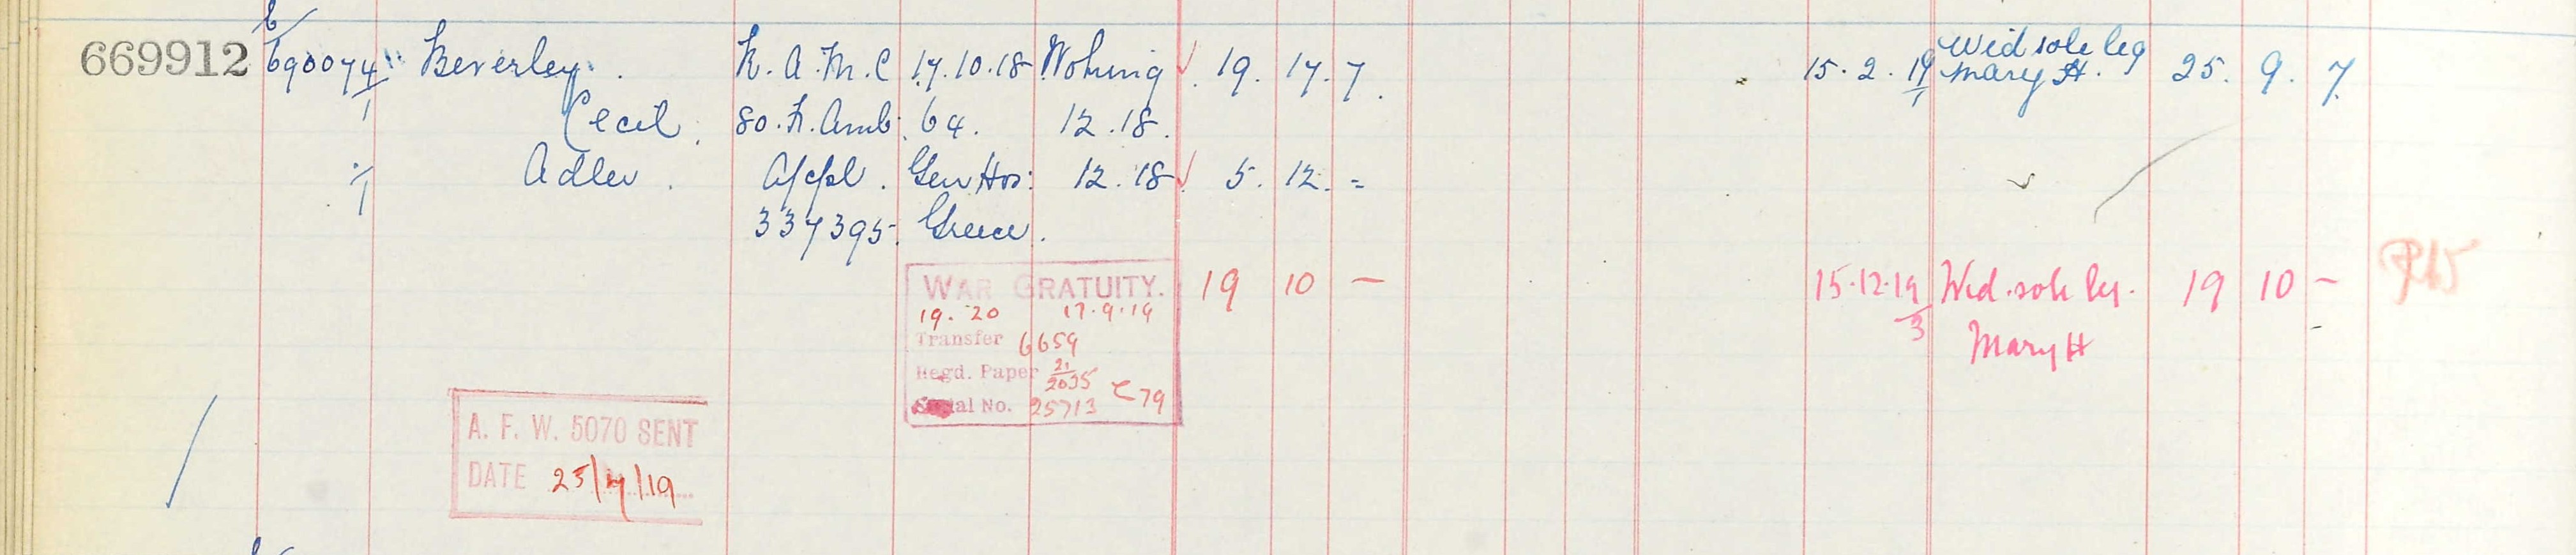 E/
669912 690074/1 Beverley. R.A.M.C 17.10.18 Woking 19. 17. 7. 15.2.19/1 Wid sole leg Mary H. 25. 9. 7.
Cecil. 80.F.Amb. 64. 12.18.
Adler. A/Cpl. Gen Hos: 12.18 5. 12. =
337395. Greece.
WAR GRATUITY. 19 10 — 15.12.19/3 Wid. sole leg. 19 10 —
19.20 17.9.19
Transfer 6659 Mary H
Regd. Paper 21/2035
Serial No. 25713 C79
A. F. W. 5070 SENT
DATE 25/4/19